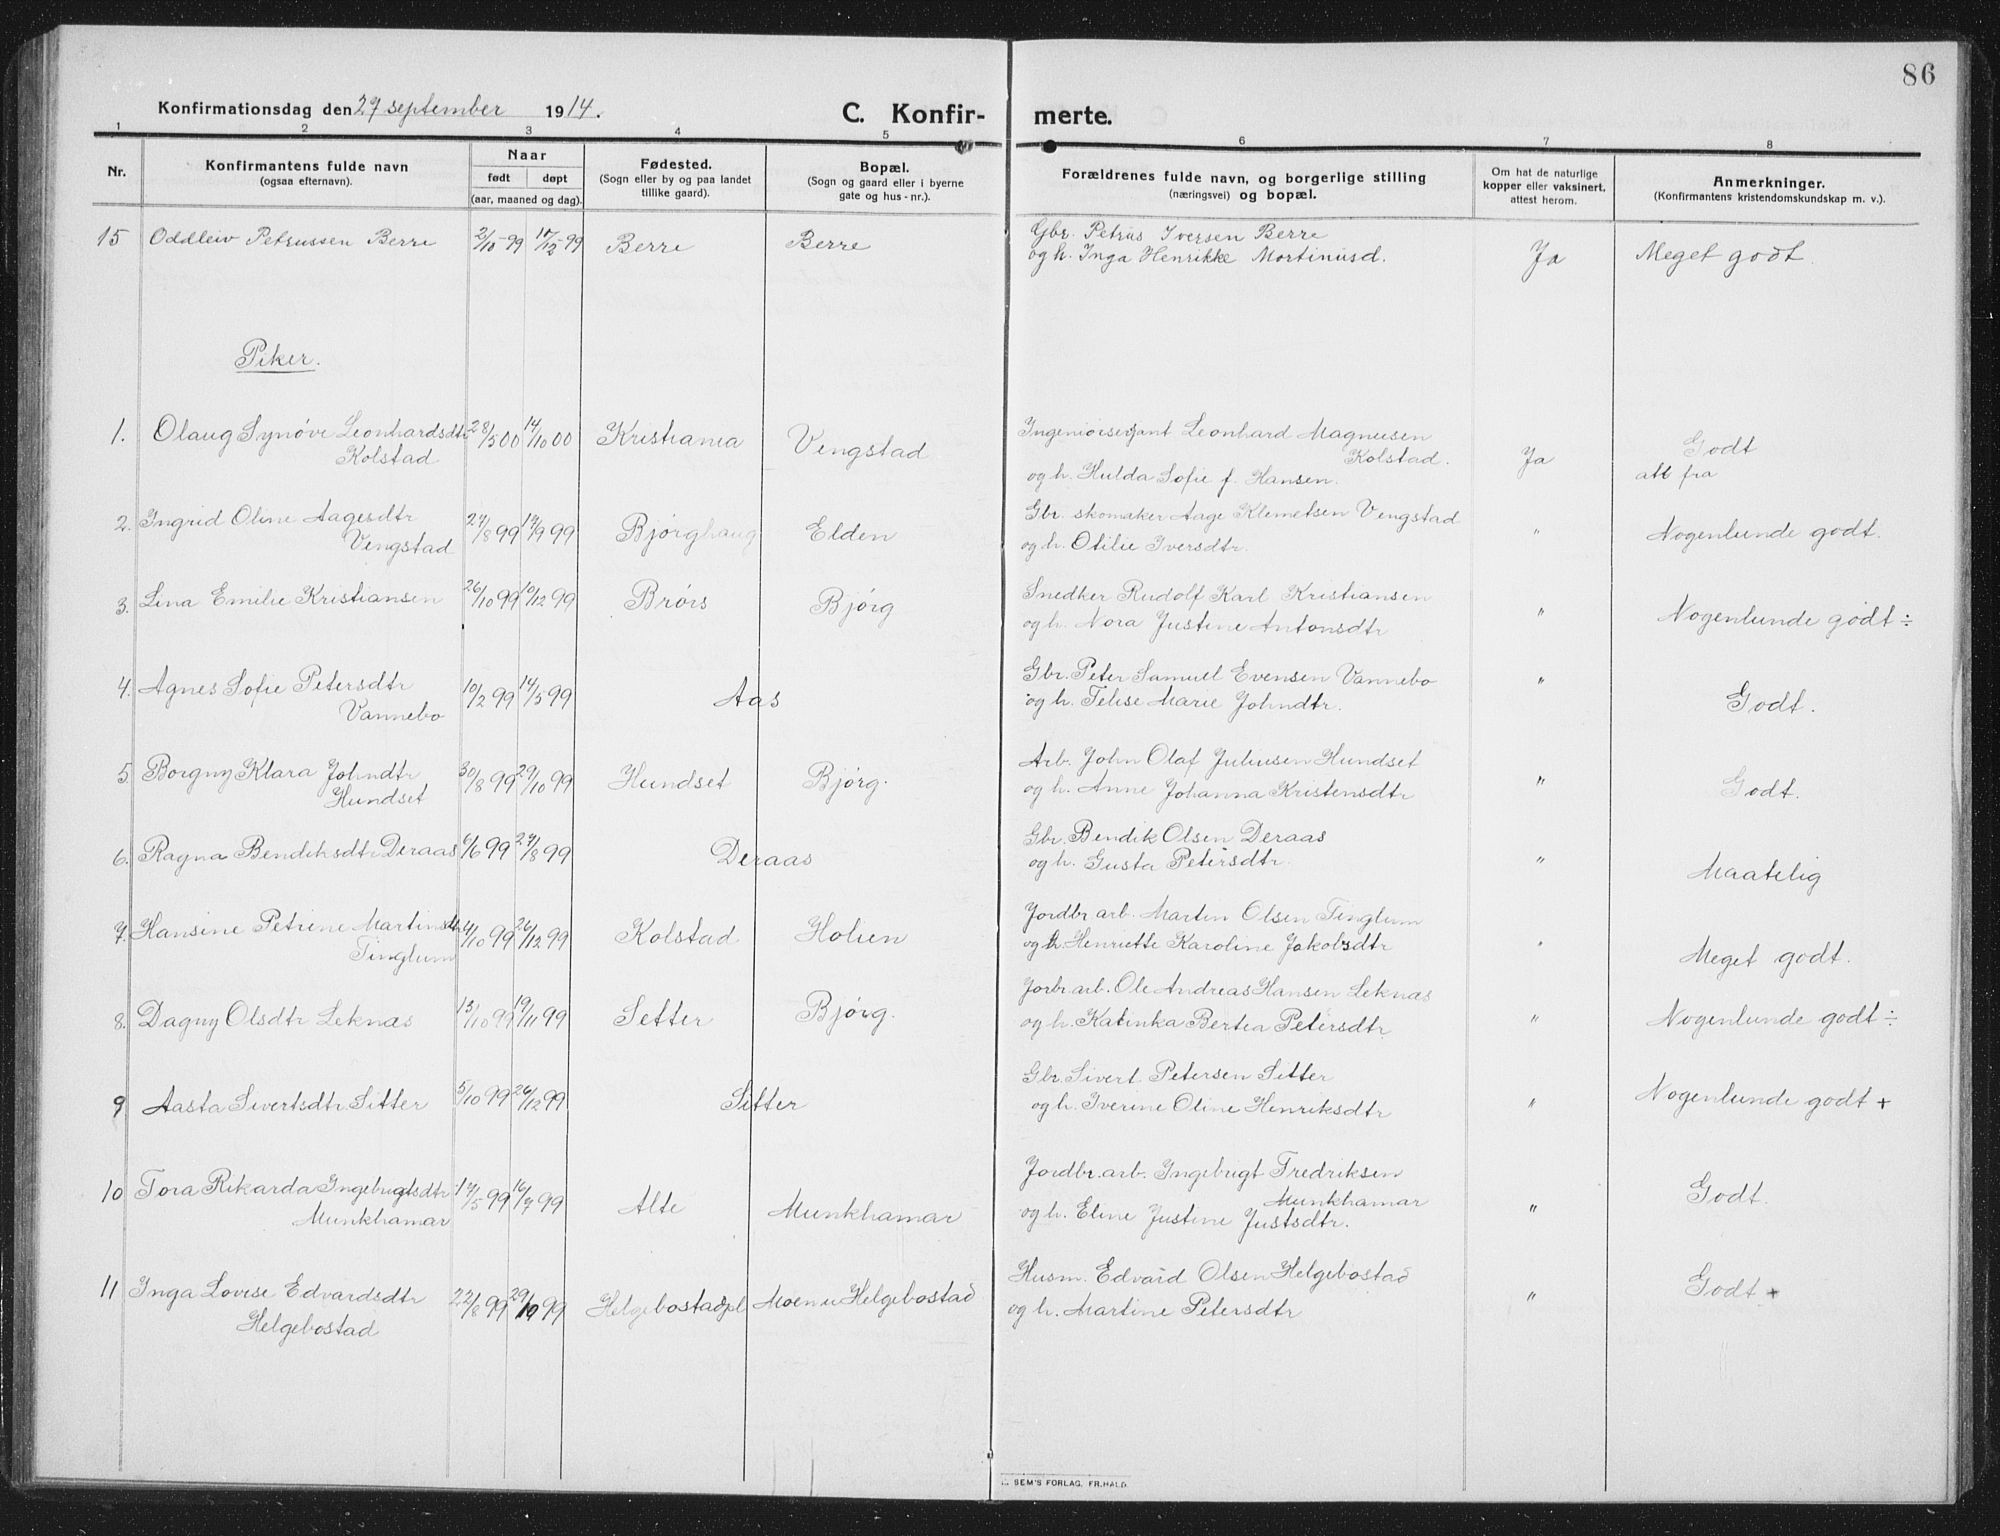 86
Konfirmationsdag den 27 september 1914.
C. Konfir- merte.
1 2 3 4 5 6 7 8
Nr.
Konfirmantens fulde navn
(ogsaa efternavn).
Naar
født døpt
(aar, maaned og dag).
Fødested.
(Sogn eller by og paa landet
tillike gaard).
Bopæl.
(Sogn og gaard eller i byerne
gate og hus-nr.).
Forældrenes fulde navn, og borgerlige stilling
(næringsvei) og bopæl.
Om hat de naturlige
kopper eller vaksinert,
attest herom.
Anmerkninger.
(Konfirmantens kristendomskundskap m. v.).
15 Oddleiv Petrussen Berre 2/10-99 17/12-99 Berre Berre Gbr. Petrus Iversen Berre
og h. Inga Henrikke Mortinusd. Ja Meget godt.
Piker.
1. Olaug Synøve Leonhardsdtr 28/5 00 14/10 00 Kristiania Vengstad Ingeniørserjant Leonhard Magnusen
Kolstad Kolstad. Ja Godt
og h. Hulda Sofie f. Hansen. att fra
2. Ingrid Oline Aagesdtr 27/8 99 17/9 99 Bjørghaug Elden Gbr. skomaker Aage Klemetsen Vengstad
Vengstad og h. Otilie Iversdtr. " Nogenlunde godt.
3. Lina Emilie Kristiansen 26/10 99 10/12 99 Brørs Bjørg Snedker Rudolf Karl Kristiansen
og h. Nora Justine Antonsdtr " Nogenlunde godt ÷
4. Agnes Sofie Petersdtr 10/2 99 14/5 99 Aas Gbr. Peter Samuel Evensen Vannebo
Vannebo og h. Felise Marie Johndtr. " Godt.
5 Borgny Klara Johndtr 30/8 99 29/10 99 Hundset Bjørg. Arb. John Olaf Juliusen Hundset
Hundset og h. Anne Johanna Kristensdtr " Godt.
6. Ragna Bendiksdtr Deraas 6/6 99 27/8 99 Deraas Gbr. Bendik Olsen Deraas
og h. Gusta Petersdtr. " Maatelig
7. Hansine Petrine Martinsdtr 4/10 99 26/12 99 Kolstad Holien Jordbr arb. Martin Olsen Tinglum
Tinglum og h. Henriette Karoline Jakobsdtr " Meget godt.
8. Dagny Olsdtr Leknæs 13/10 99 19/11 99 Setter Bjørg. Jorbr. arb. Ole Andreas Hansen Leknæs
og h. Katinka Bertea Petersdtr " Nogenlunde godt ÷
9 Aasta Sivertsdtr Sitter 5/10 99 26/12 99 Sitter Gbr. Sivert Petersen Sitter
og h. Iverine Oline Henriksdtr " Nogenlunde godt +
10 Tora Rikarda Ingebrigtsdtr 17/5 99 16/7 99 Alte Munkhamar Jordbr. arb. Ingebrigt Fredriksen
Munkhamar Munkhamar
og h. Eline Justine Justsdtr. " Godt.
11 Inga Lovise Edvardsdtr 22/8 99 29/10 99 Helgebostadpl Moen u Helgebostad Husm. Edvard Olsen Helgebostad
Helgebostad og h. Martine Petersdtr " Godt +
SEM'S FORLAG, FR.HALD.